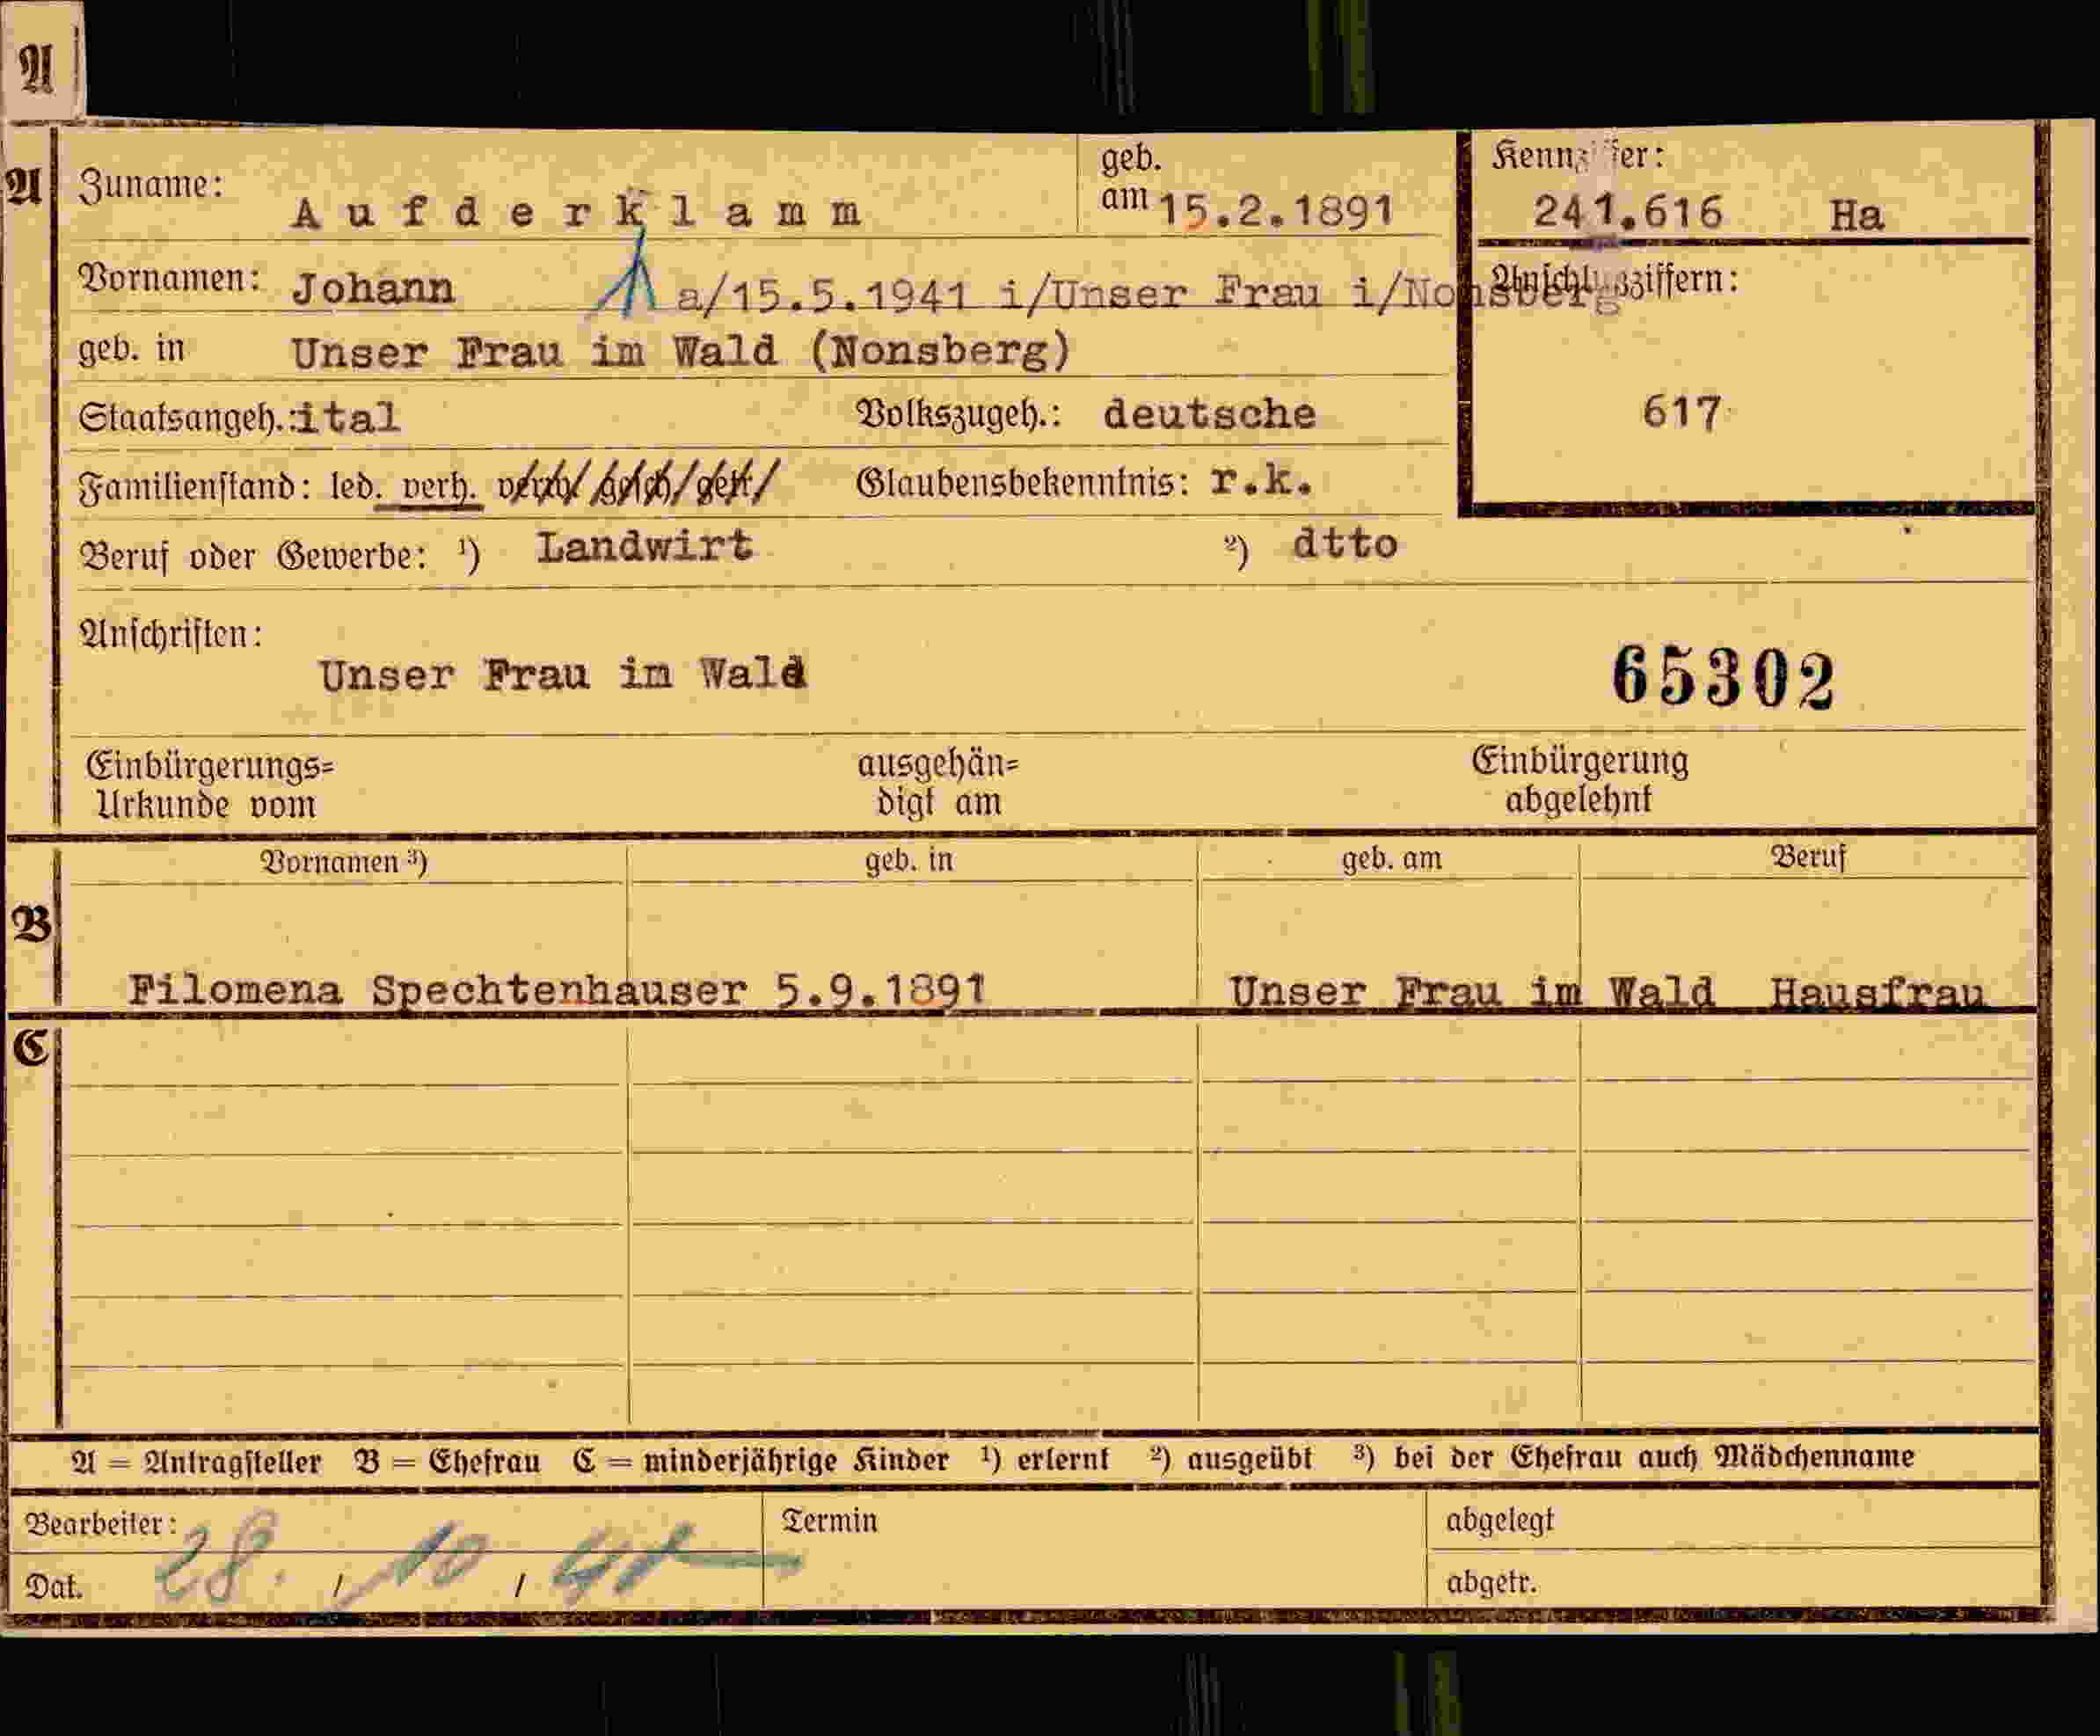 A
A Zuname: Aufderklamm geb. am 15.2.1891 Kennziffer: 241.616 Ha
Vornamen: Johann a/15.5.1941 i/Unser Frau i/Nonsberg Anschlussziffern:
geb. in Unser Frau im Wald (Nonsberg)
Staatsangeh.: ital Volkszugeh.: deutsche 617
Familienstand: led. verh. verw. gesch. getr. Glaubensbekenntnis: r.k.
Beruf oder Gewerbe: ¹) Landwirt ²) dtto
Anschriften:
Unser Frau im Wald 65302
Einbürgerungs= ausgehän= Einbürgerung
Urkunde vom digt am abgelehnt
Vornamen ³) geb. in geb. am Beruf
B
Filomena Spechtenhauser 5.9.1891 Unser Frau im Wald Hausfrau
C
A = Antragsteller B = Ehefrau C = minderjährige Kinder ¹) erlernt ²) ausgeübt ³) bei der Ehefrau auch Mädchenname
Bearbeiter: Termin abgelegt
Dat. 28. / 10 / 41 abgetr.